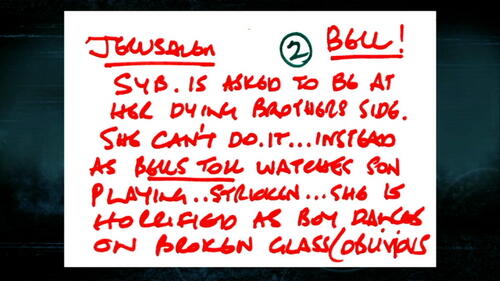 JERUSALEM 2 BELL!
SYB. IS ASKED TO BE AT
HER DYING BROTHERS SIDE.
SHE CAN'T DO.IT...INSTEAD
AS BELLS TOLL WATCHES SON
PLAYING..STRICKEN...SHE IS
HORRIFIED AS BOY DANCES
ON BROKEN GLASS(OBLIVIOUS